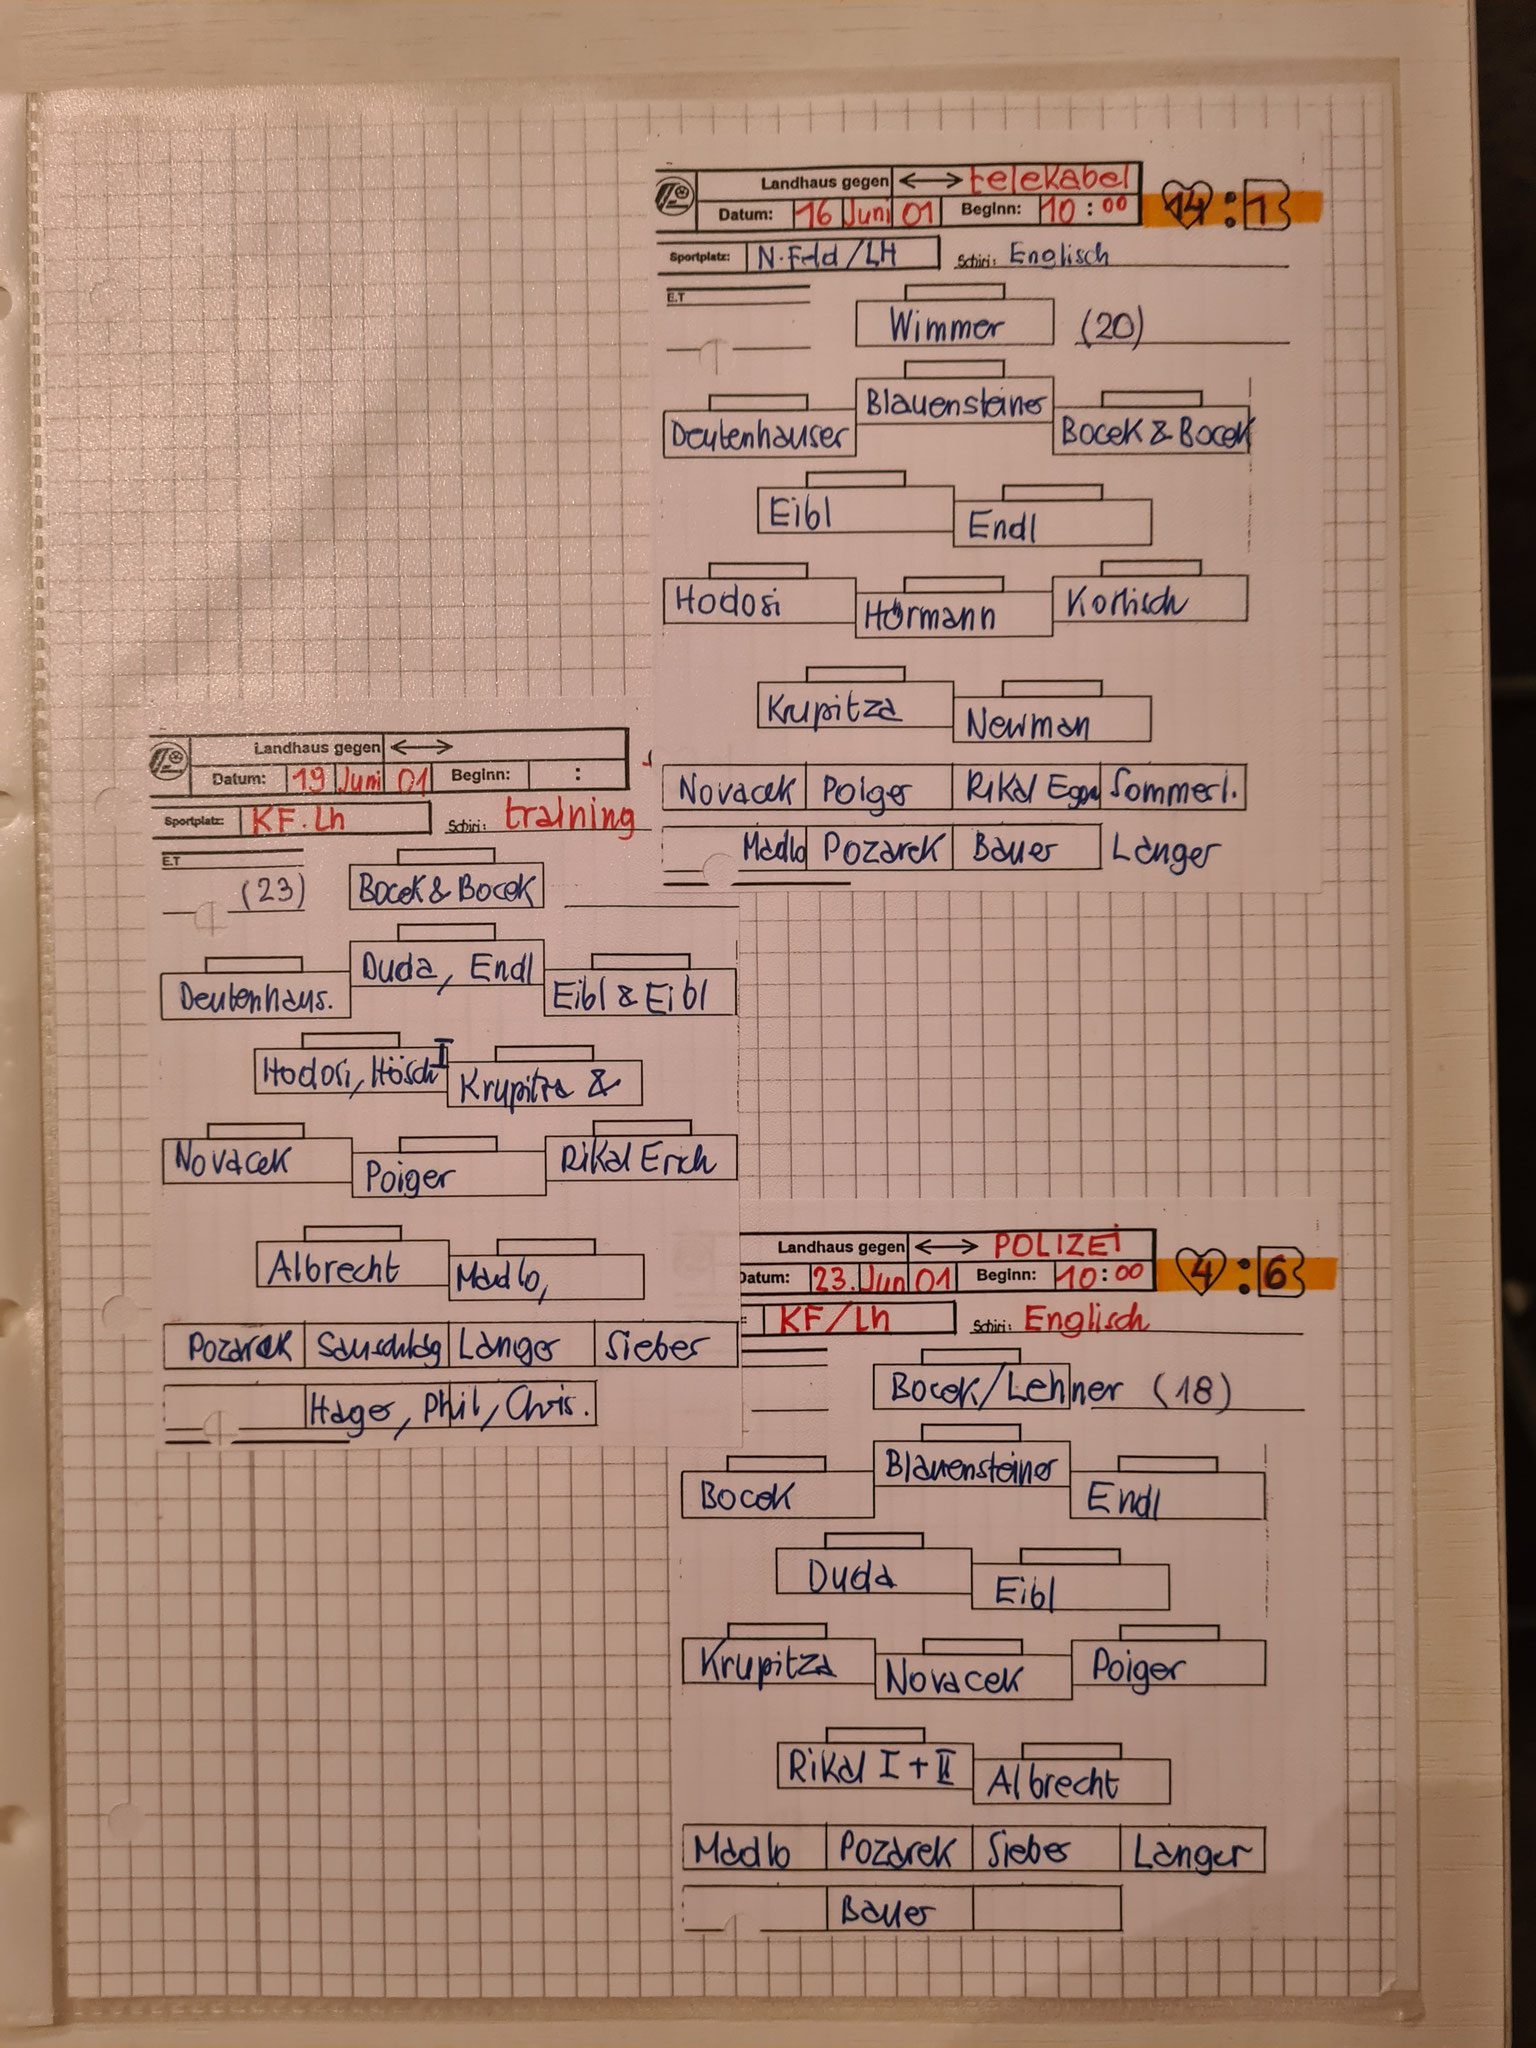 Landhaus gegen ↔ telekabel
Datum: 16 Juni 01 Beginn: 10:00 14:13
Sportplatz: N.Feld/LH Schiri: Englisch
E.T
Wimmer (20)
Blauensteiner
Deutenhauser Bocek & Bocek
Eibl Endl
Hodosi Hörmann Kortisch
Krupitza Newman
Novacek Poiger Rikal Sommerl.
Madlo Pozarek Bauer Langer
Landhaus gegen ↔
Datum: 19 Juni 01 Beginn: :
Sportplatz: KF.Lh Schiri: training
E.T
(23) Bocek & Bocek
Duda, Endl
Deutenhaus. Eibl & Eibl
Hodosi, Hösch I Krupitza &
Novacek Poiger Rikal Erich
Albrecht Madlo,
Pozarek Sauschlag Langer Sieber
Hager, Phil, Chris.
Landhaus gegen ↔ POLIZEI
Datum: 23. Jun 01 Beginn: 10:00 4:6
KF/Lh Schiri: Englisch
Bocek/Lehner (18)
Blauensteiner
Bocek Endl
Duda Eibl
Krupitza Novacek Poiger
Rikal I + II Albrecht
Madlo Pozarek Sieber Langer
Bauer